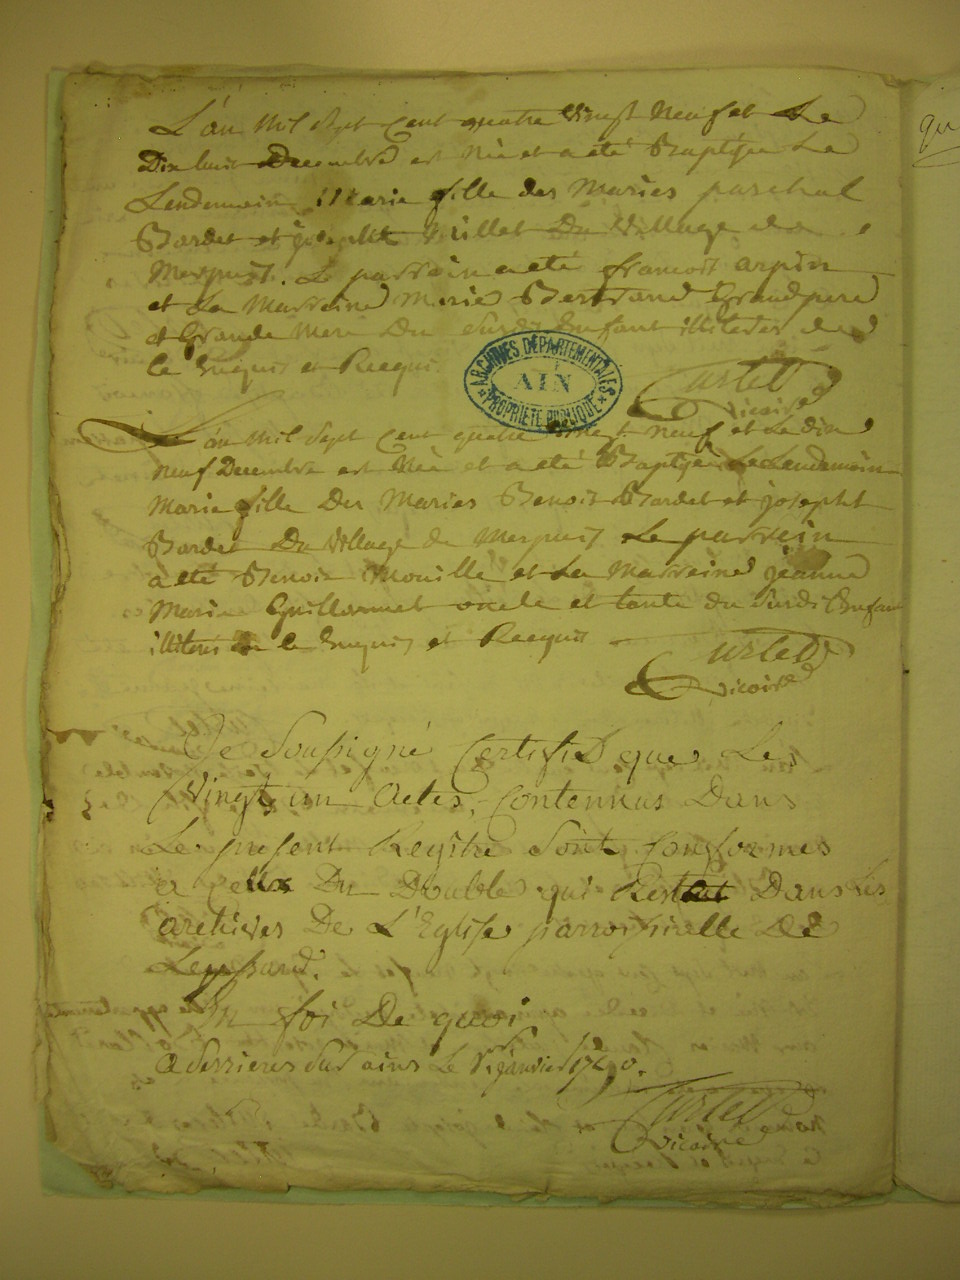 L'an Mil Sept Cent quatre Vingt Neuf et Le
Dix huit Decembre est Née et a eté Baptisée Le
Lendemain Marie fille des Maries
Bardet et josephte Du Village de
Le parrain a eté francois arpin
et La Marreine Marie Bertrand Grand pere
et Grande Mere Du Susdit Enfant illiteres de
Ce Enquis et Requis
ARCHIVES DÉPARTEMENTALES
AIN
PROPRIÉTÉ PUBLIQUE
Curtet
Vicaire
L'an Mil Sept Cent quatre vingt neuf et Le dix
neuf Decembre est Née et a eté Baptisée Le Lendemain
Marie fille Des Maries Benoit Bardet et josepht
Bardet Du Village de Le parrein
a eté Benoit Mouille et La Marreine jeanne
Marie Guillermet oncle et tante du Susdit Enfant
de ce Enquis et Requis
Curtet
Vicaire
Je Soussigné Certifie que Les
Vingt un Actes, Contenus Dans
Le present Registre Sont Conformes
a Ceux Du Double qui Dans Les
archives De L'Eglise parroissielle De
Leyssard.
En foi De quoi
a Serrieres Sur ains Le janvier 1790.
Curtet
Vicaire
qu